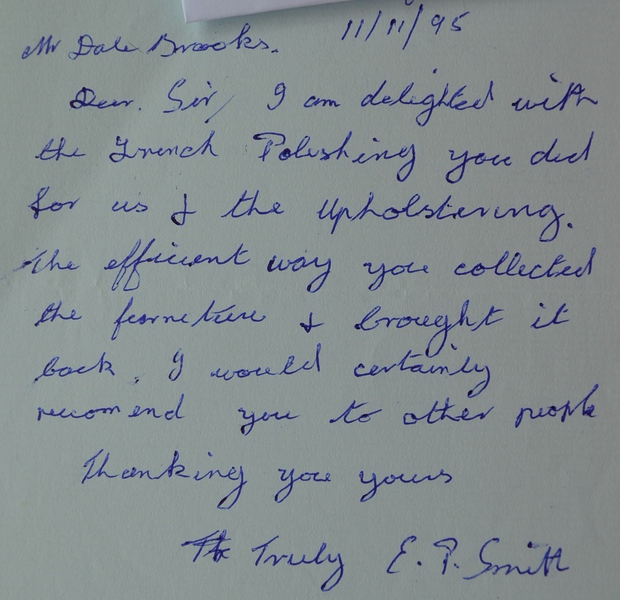 Mr Dale Brooks. 11/11/95
Dear. Sir, I am delighted with
the French Polishing you did
for us & the Upholstering.
The efficient way you collected
the furneture & brought it
back. I would certainly
recomend you to other people
Thanking you yours
Truly E. P. Smith